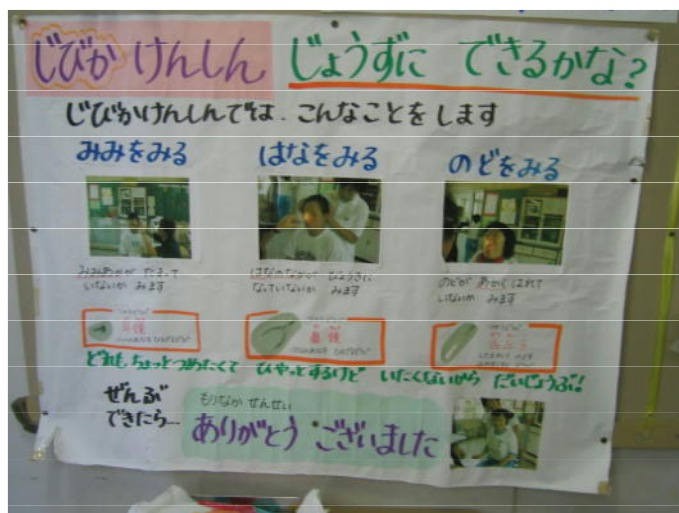 じびか けんしん じょうずに できるかな?
じびかけんしんでは、こんなことを します
みみをみる
はなをみる
のどをみる
みみあかが たまって
いないか みます
はなのなかが びょうきに
なっていないか みます
のどが あかく はれて
いないか みます
耳鏡
鼻鏡
どれも ちょっとつめたくて ひやっとするけど いたくないから だいじょうぶ!
ぜんぶ
できたら…
もりなが せんせい
ありがとう ございました